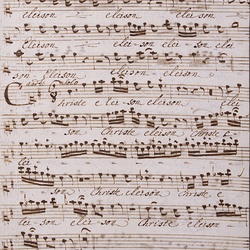 eleison eleison
eleison. elei- son elei- son elei
son eleison
Christe elei- son. eleison
son Christe eleison Christe e-
lei-
son Christe eleison Christe
elei- son eleison eleison.